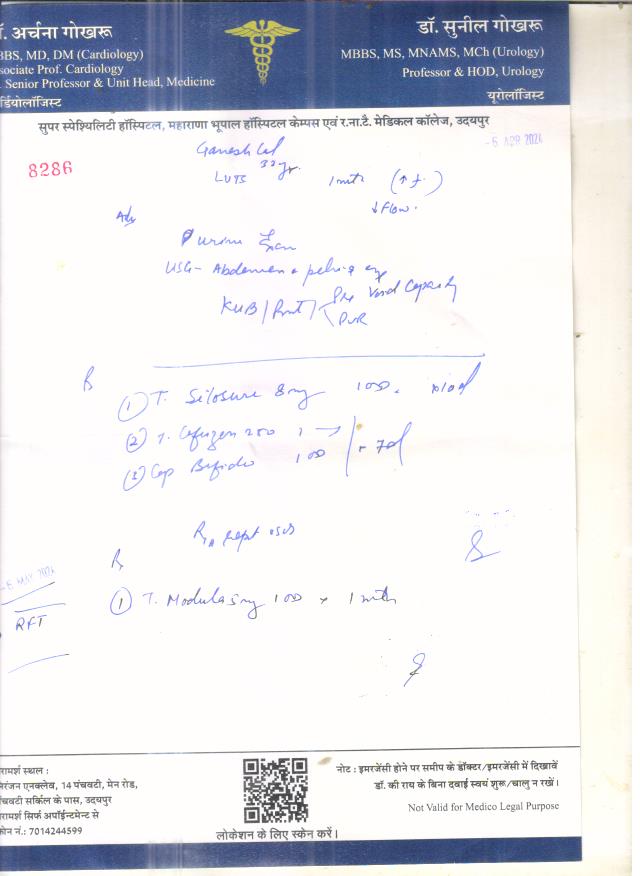 . अर्चना गोखरू
BBS, MD, DM (Cardiology)
ssociate Prof. Cardiology
. Senior Professor & Unit Head, Medicine
र्डियोलॉजिस्ट
डॉ. सुनील गोखरू
MBBS, MS, MNAMS, MCh (Urology)
Professor & HOD, Urology
यूरोलॉजिस्ट
सुपर स्पेशियलिटी हॉस्पिटल, महाराणा भूपाल हॉस्पिटल केम्पस एवं र.ना.टै. मेडिकल कॉलेज, उदयपुर
8286
Ganesh Lal
32 yr.
- 6 APR 2024
LUTS 1 mth (↑ f.)
↓ Flow.
Adv
Urine Exam
USG- Abdomen & pelvis
KUB / Prost / Pre Void Capacity
PVR
R
① T. Silosure 8mg 1OD
② T. 200 1
③ Cap Bifido 1OD × 7d
R
- 6 MAY 2024
RFT
① T. 5mg 1OD × 1 mth
रामर्श स्थल :
नेरंजन एनक्लेव, 14 पंचवटी, मेन रोड,
पंचवटी सर्किल के पास, उदयपुर
रामर्श सिर्फ अपॉईन्टमेन्ट से
फोन नं.: 7014244599
लोकेशन के लिए स्केन करें।
नोट : इमरजेंसी होने पर समीप के डॉक्टर/इमरजेंसी में दिखावें
डॉ. की राय के बिना दवाई स्वयं शुरू/चालु न रखें।
Not Valid for Medico Legal Purpose